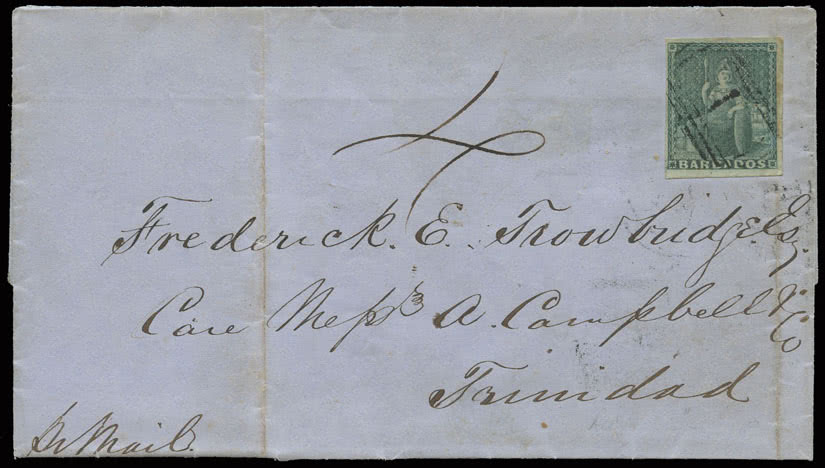 4
1
BARBADOS
Frederick. E. Trowbridge. Esq.
Care Messrs A. Campbell & Co
Trinidad
Pr Mail.